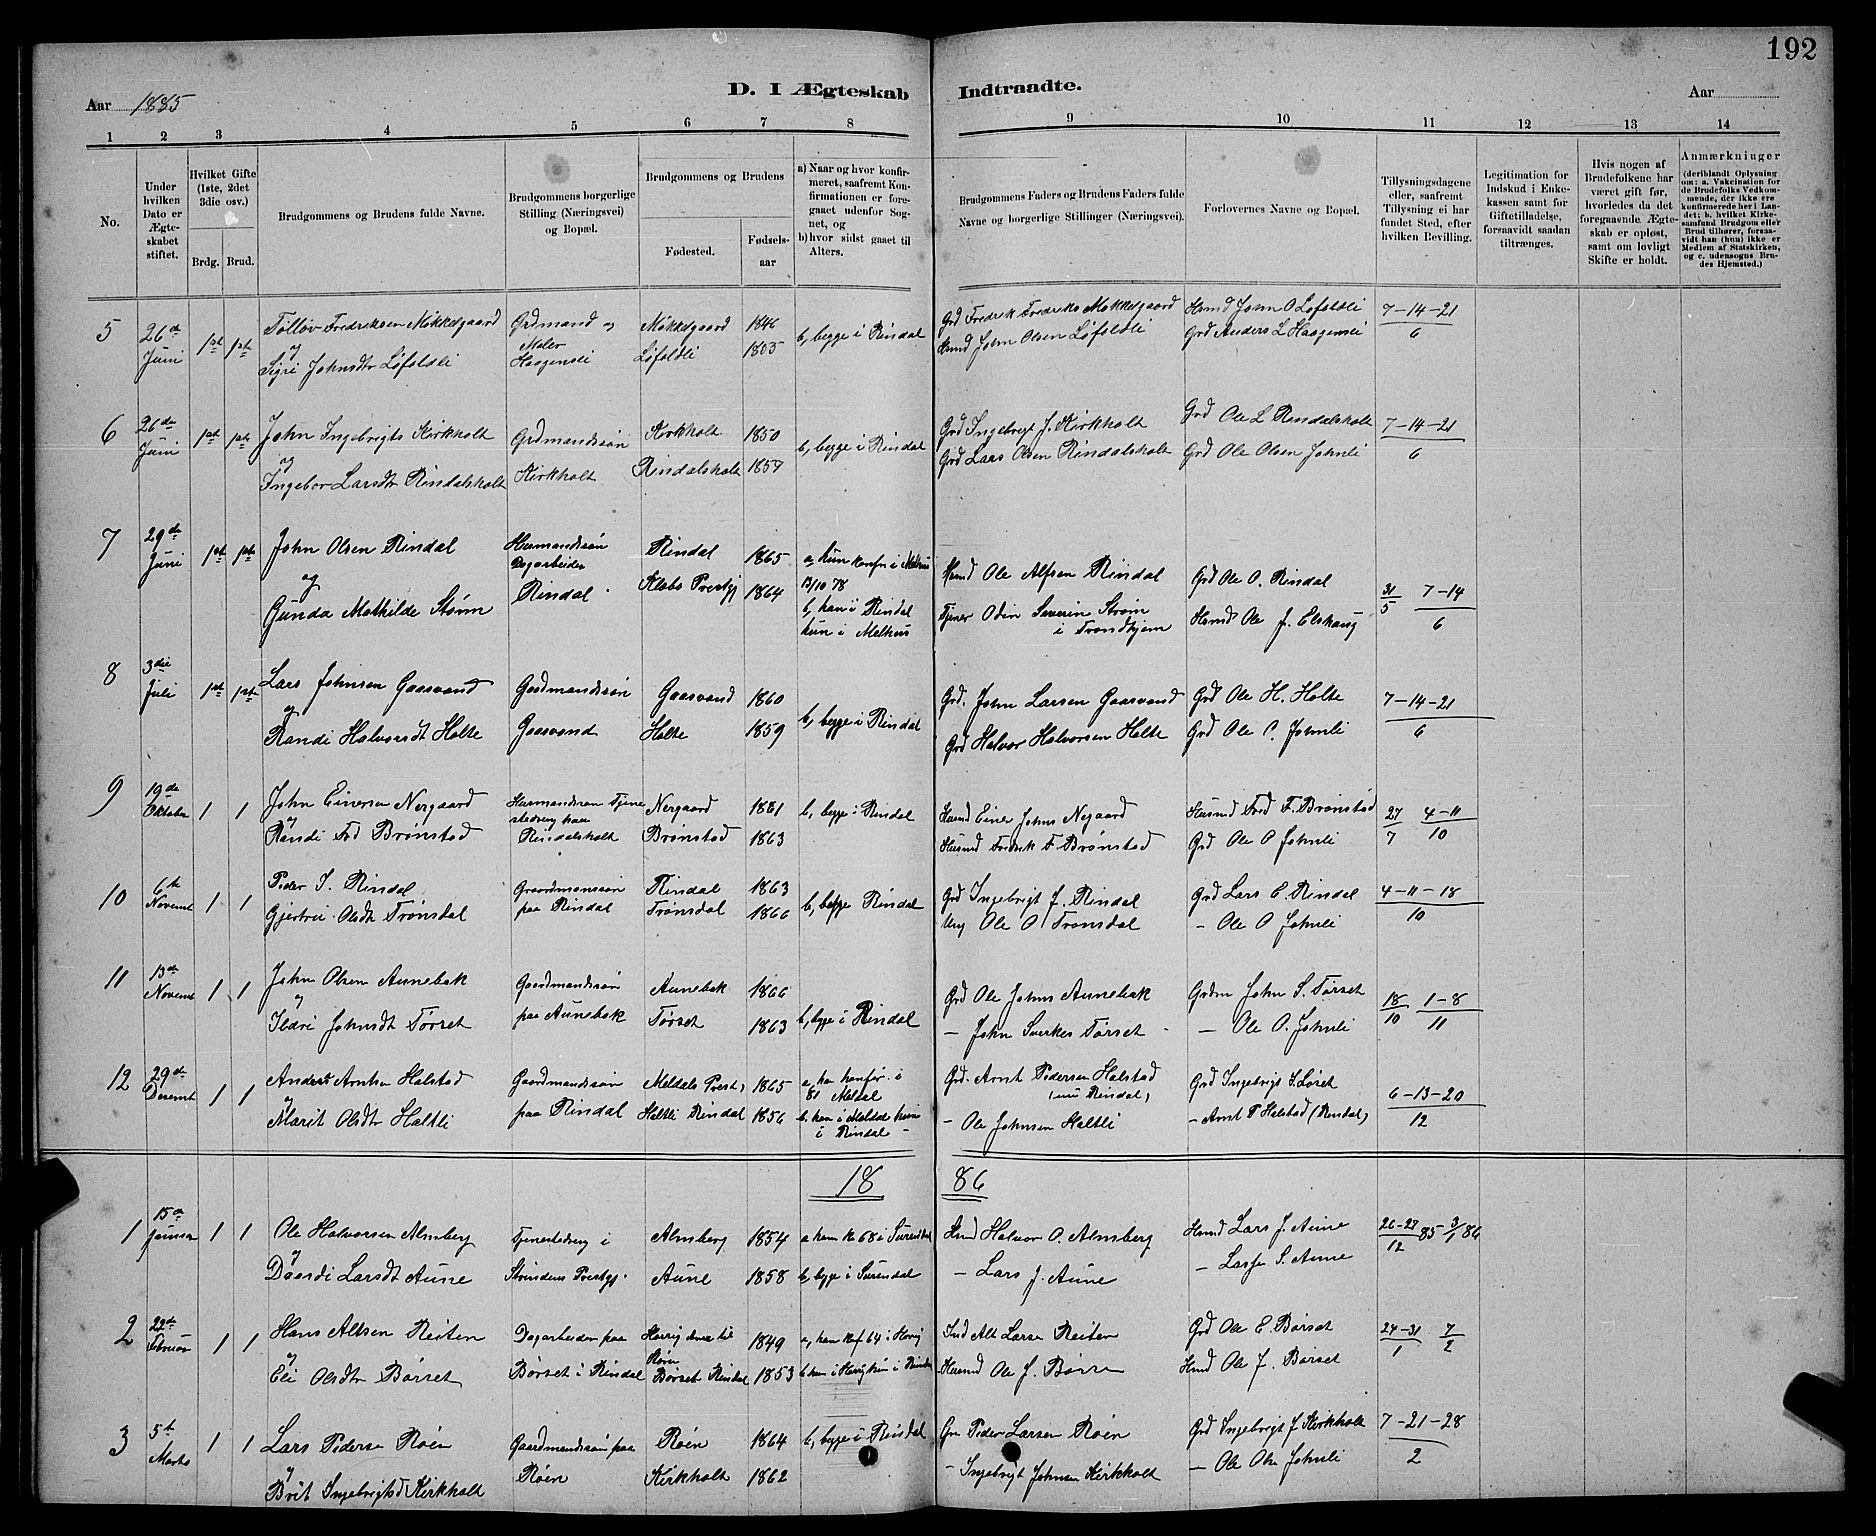 192
Aar 1885
D. I Ægteskab Indtraadte.
Aar
1 2 3 4 5 6 7 8 9 10 11 12 13 14
No.
Under hvilken Dato er Ægteskabet stiftet.
Hvilket Gifte (1ste, 2det 3die osv.)
Brdg. Brud.
Brudgommens og Brudens fulde Navne.
Brudgommens borgerlige Stilling (Næringsvei) og Bopæl.
Brudgommens og Brudens
Fødested. Fødsels-aar
a) Naar og hvor konfirmeret, saafremt Konfirmationen er foregaaet udenfor Sognet, og
b) hvor sidst gaaet til Alters.
Brudgommens Faders og Brudens Faders fulde Navne og borgerlige Stillinger (Næringsvei).
Forlovernes Navne og Bopæl.
Tillysningsdagene eller, saafremt Tillysning ei har fundet Sted, efter hvilken Bevilling.
Legitimation for Indskud i Enkekassen samt for Giftetilladelse, forsaavidt saadan tiltrænges.
Hvis nogen af Brudefolkene har været gift før, hvorledes da det foregaaende Ægteskab er opløst, samt om lovligt Skifte er holdt.
Anmærkniuger (deriblandt Oplysning om: a. Vakcination for de Brudefolks Vedkommende, der ikke ere konfirmerede her i Landet; b. hvilket Kirkesamfund Brudgom eller Brud tilhører, forsaavidt han (hun) ikke er Medlem af Statskirken, og c. udensogns Brudes Hjemsted.)
5 26de Juni 1ste 1ste Tølløv Fredriksen Møkkelgaard Grdmand og Maler Haagensli Møkkelgaard 1846 b, begge i Rindal Grd Fredrik Fredriks Møkkelgaard Husmd John O Løfaldli 7-14-21
og Sigri Johnsdtr Løfaldli Løfaldli John Olsen Løfaldli Grd Anders L Haagensli 6
6 26de Juni 1ste 1ste John Ingebrigts Kirkholt Grdmandssøn Kirkholt 1850 b, begge i Rindal Grd Ingebrigt J. Kirkholt Grd Ole L Rindalsholt 7-14-21
og Ingebor Larsdtr Rindalsholt Kirkholt Rindalsholt 1859 Grd Lars Olsen Rindalsholt Grd Ole Olsen Johnli 6
7 29de Juni 1ste 1ste John Olsen Rindal Husmandssøn Dagarbeider Rindal 1865 a, hun konfr i Melhus 13/10 78 Husmd Ole Alfsen Rindal Grd Ole O. Rindal 31/5 7-14
og Gunda Mathilde Strøm Rindal Klæbo Prestgj 1864 b, han i Rindal hun i Melhus Tjener Odin Severin Strøm i Trondhjem Husmd Ole J. Elshaug 6
8 3die Juli 1ste 1ste Lars Johnsen Gaasvand Gaardmandssøn Gaasvand 1860 b, begge i Rindal Grd. John Larsen Gaasvand Grd Ole H. Holte 7-14-21
og Randi Halvorsdt Holte Gaasvand Holte 1859 Grd Halvor Halvorsen Holte Grd Ole O. Johnli 6
9 19de Oktober 1 1 John Einersen Nergaard Husmandssøn Tjenestedreng paa Nergaard 1861 b, begge i Rindal Husmd Einer Johns Negaard Husmd Fred F. Brønstad 27/7 4-11
og Randi Fred Brønstad Rindalsholt Brønstad 1863 Husmd Fredrik F. Brønstad Grd Ole O Johnli 10
10 6te Novemb 1 1 Peder I. Rindal Gaardmanssøn Rindal 1863 b, begge Rindal Grd Ingebrigt J. Rindal Grd Lars E. Rindal 4-11-18
Gjertrui Olsdt Trønsdal paa Rindal Trønsdal 1866 Ole O Trønsdal - Ole O Johnli 10
11 13de Novemb 1 1 John Olsen Aunebak Gaardmandssøn Aunebak 1866 b, begge i Rindal Grd Ole Johns Aunebak Grdm John S. Tørset 18/10 1-8
og Ildri Johnsdt Tørset paa Aunebak Tørset 1863 - John Sverkes Tørset - Ole O. Johnli 11
12 29de Decemb 1 1 Anders Arntsen Halstad Gaardmandssøn Meldals Prest. 1865 a, han konfir. i 81 Meldal Grd. Arnt Pedersen Halstad (nu Rindal) Grd Ingebrigt S. Løset 6-13-20
Marit Olsdtr Haltli paa Rindal Haltli Rindal 1856 b. han i Meldal hun i Rindal - Ole Johnsen Haltli - Arnt P Halstad (Rindal) 12
18 86
1 15de Januar 1 1 Ole Halvorsen Almberg Tjenestedreng i Almberg 1854 a han k 68 i Surendal Husmd Halvor O. Almberg Husmd Lars J. Aune 26-27/12 85 3/1 86
og Dordi Larsdt Aune Strindens Prestgj. Aune 1858 b, begge i Surendal - Lars J. Aune - Lasse S. Aune
2 22de Februar 1 1 Hans Altsen Reiten Dagarbeider paa 1849 a, han kf 64 i Alt Larsen Reiten Grd Ole E. Børset 24-31/1 7/2
og Eli Olsdtr Børset Børset i Rindal Børset Rindal 1853 hun i Rindal Husmd Ole J. Børse Husmd Ole J. Børset
3 5te Marts 1 1 Lars Pederse Røen Gaardmandssøn paa Røen 1864 b, begge i Rindal Peder Larsen Røen Grd Ingebrigt J Kirkholt 7-21-28
og Brit Ingebrigtsd Kirkholt Røen Kirkholt 1862 - Ingebrigt Johnsen Kirkholt - Ole Olse Johnli 2